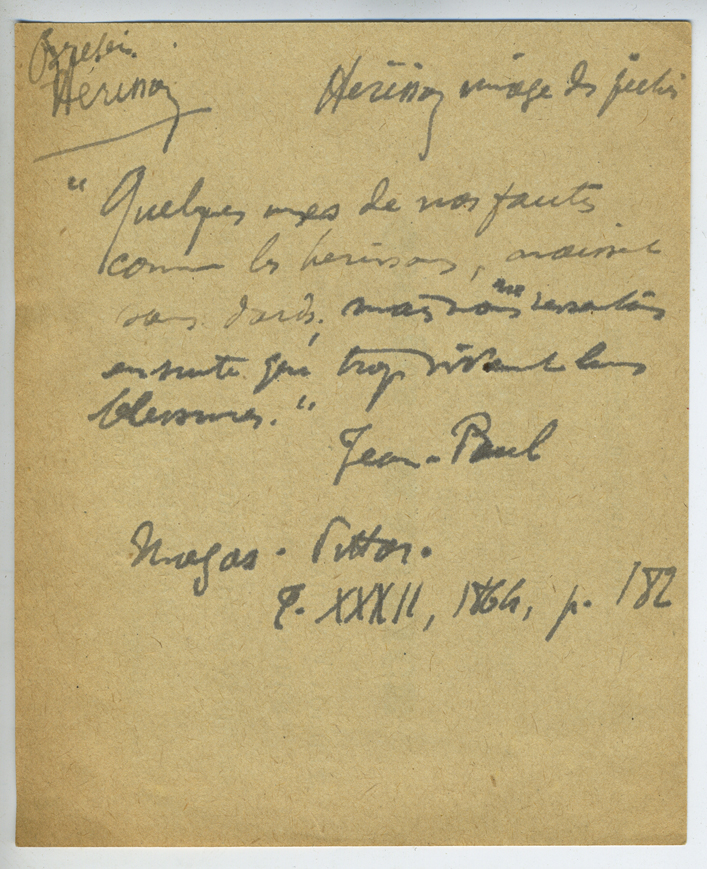 Hérisson
Hérisson image des
"Quelques unes de nos fautes
comme les herissons, naissent
sans dards, mais nous ne ressentons
ensuite que trop vivement leurs
blessures."
Jean-Paul
Magas. Pittor.
T. XXXII, 1864, p. 182